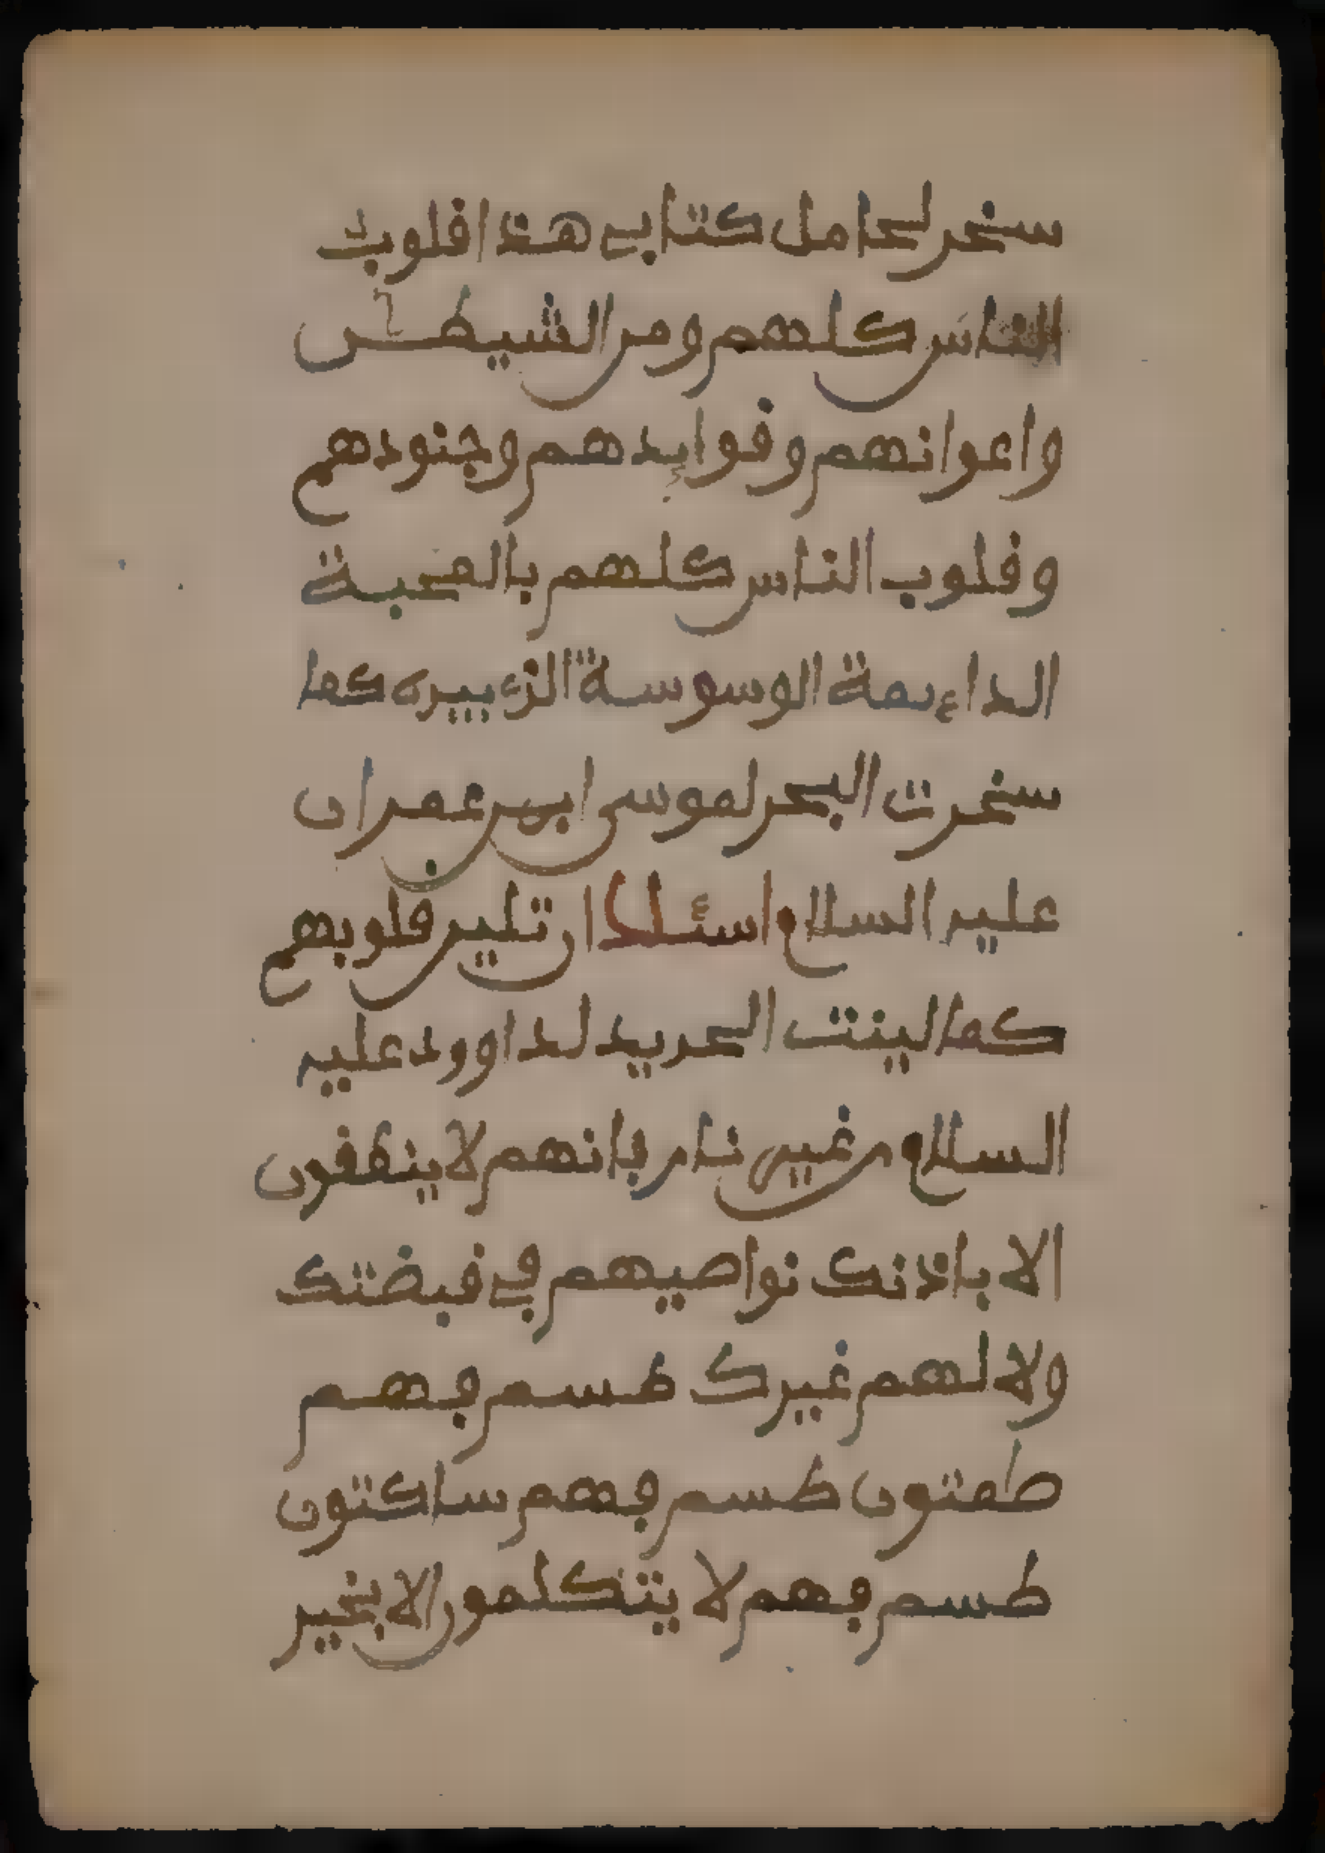 سخر لحامل كتابي هذا قلوب
الناس كلهم ومن الشيطن
واعوانهم وفوايدهم وجنودهم
وقلوب الناس كلهم بالمحبة
الداءيمة الوسوسة كما
سخرت البحر لموسى ابن عمران
عليه السلام اسئلك ان تلين قلوبهم
كما لينت الحديد لداوود عليه
السلام من غير نار بانهم لا ينطقون
الا باذنك نواصيهم في قبضتك
ولا لهم غيرك طسم فهم
صمتون طسم فهم ساكتون
طسم فهم لا يتكلمون الا بخير